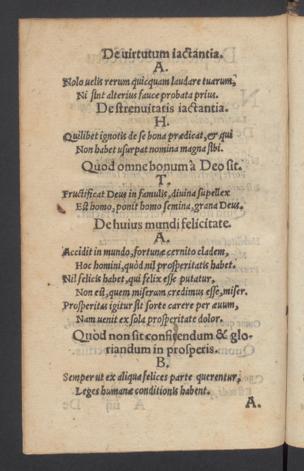 De uirtutum iactantia.
A.
Nolo uelis rerum quicquam laudare tuarum,
Ni sint alterius fauce probata prius.
De strenuitatis iactantia.
H.
Quilibet ignotis de se bona prædicat, & qui
Non habet usurpat nomina magna sibi.
Quod omne bonum à Deo sit.
T.
Fructificat Deus in famulis, diuina supellex
Est homo, ponit homo semina, grana Deus.
De huius mundi felicitate.
A.
Accidit in mundo, fortunæ cernito cladem,
Hoc homini, quòd nil prosperitatis habet.
Nil felicis habet, qui felix esse putatur,
Non est, quem miserum credimus esse, miser.
Prosperitas igitur sit forte carere per æuum,
Nam uenit ex sola prosperitate dolor.
Quòd non sit confitendum & glo-
riandum in prosperis.
B.
Semper ut ex aliqua felices parte querentur,
Leges humanæ conditionis habent.
A.